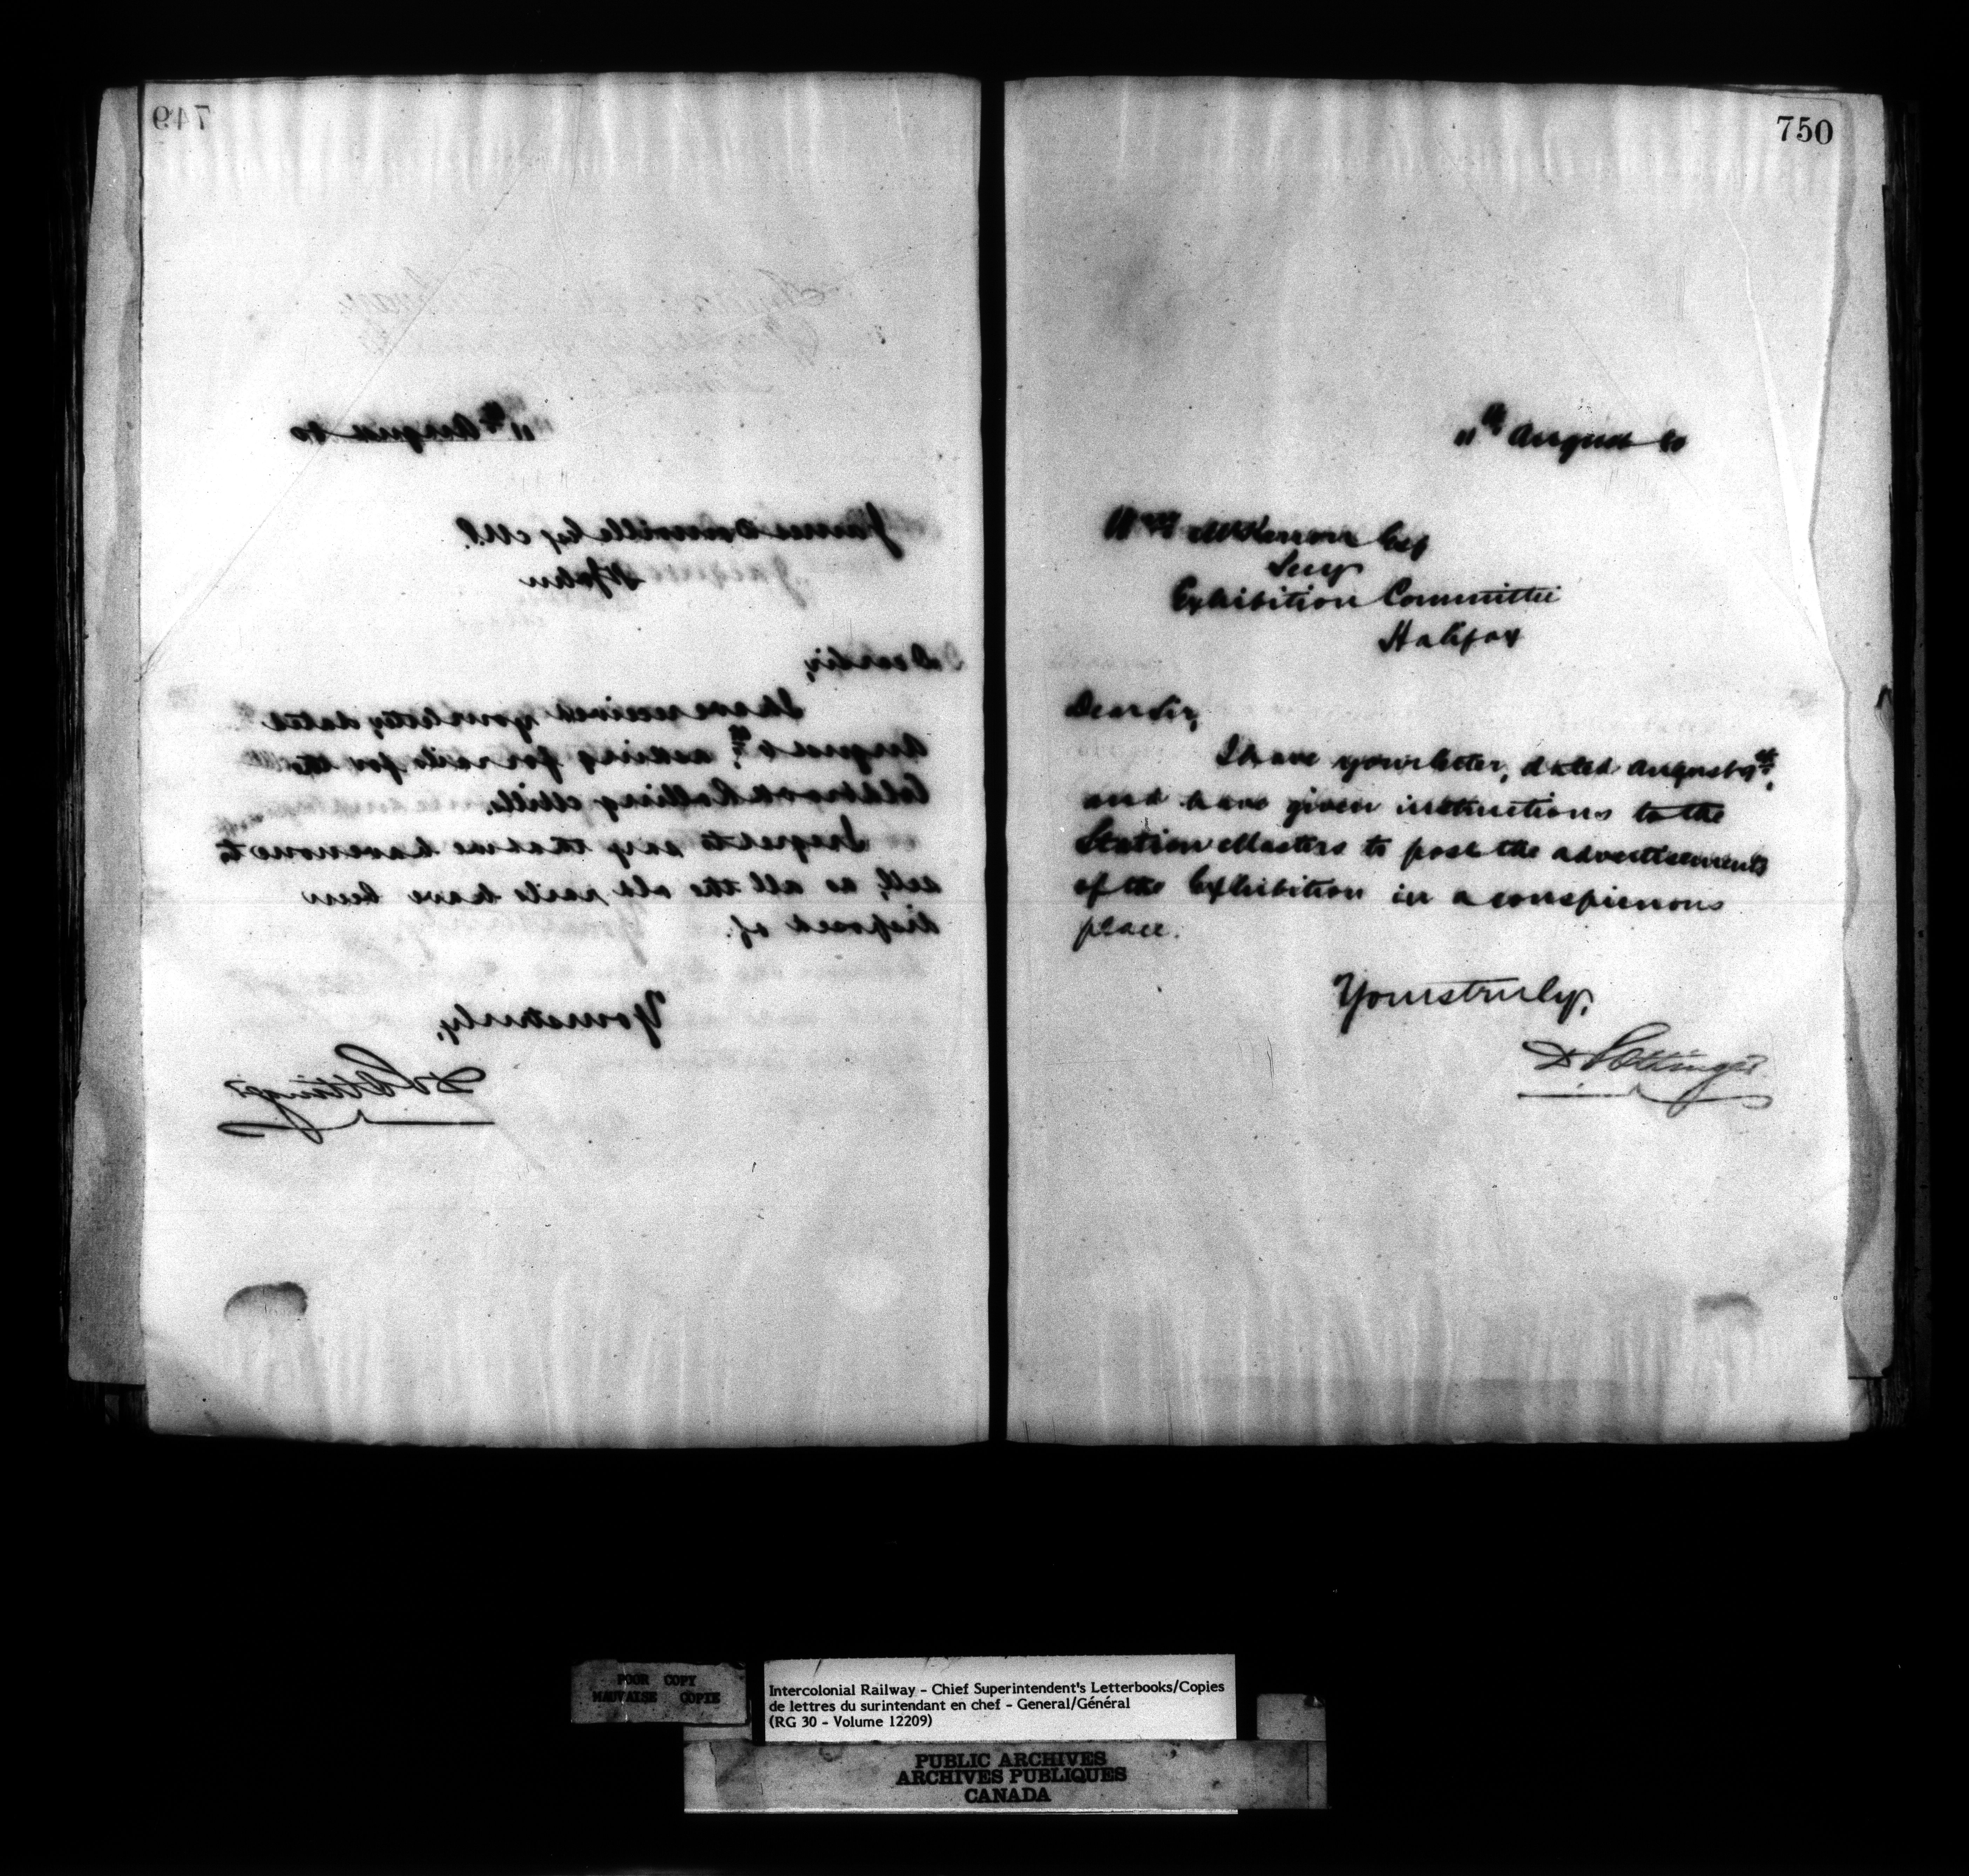 749
11th August 80
James Domville Esq M.P.
St John
Dear Sir,
I have received your letter, dated
August 6th, asking for rails for the
Coldbrook Rolling Mills.
I regret to say that we have none to
sell, as all the old rails have been
disposed of.
Yours truly,
D Pottinger
750
11th August 80
Wm McKerron Esq
Secy
Exhibition Committee
Halifax
Dear Sir,
I have your letter, dated August 9th,
and have given instructions to the
Station Masters to post the advertisements
of the Exhibition in a conspicuous
place.
Yours truly,
D Pottinger
POOR COPY
MAUVAISE COPIE
Intercolonial Railway - Chief Superintendent's Letterbooks/Copies
de lettres du surintendant en chef - General/Général
(RG 30 - Volume 12209)
PUBLIC ARCHIVES
ARCHIVES PUBLIQUES
CANADA